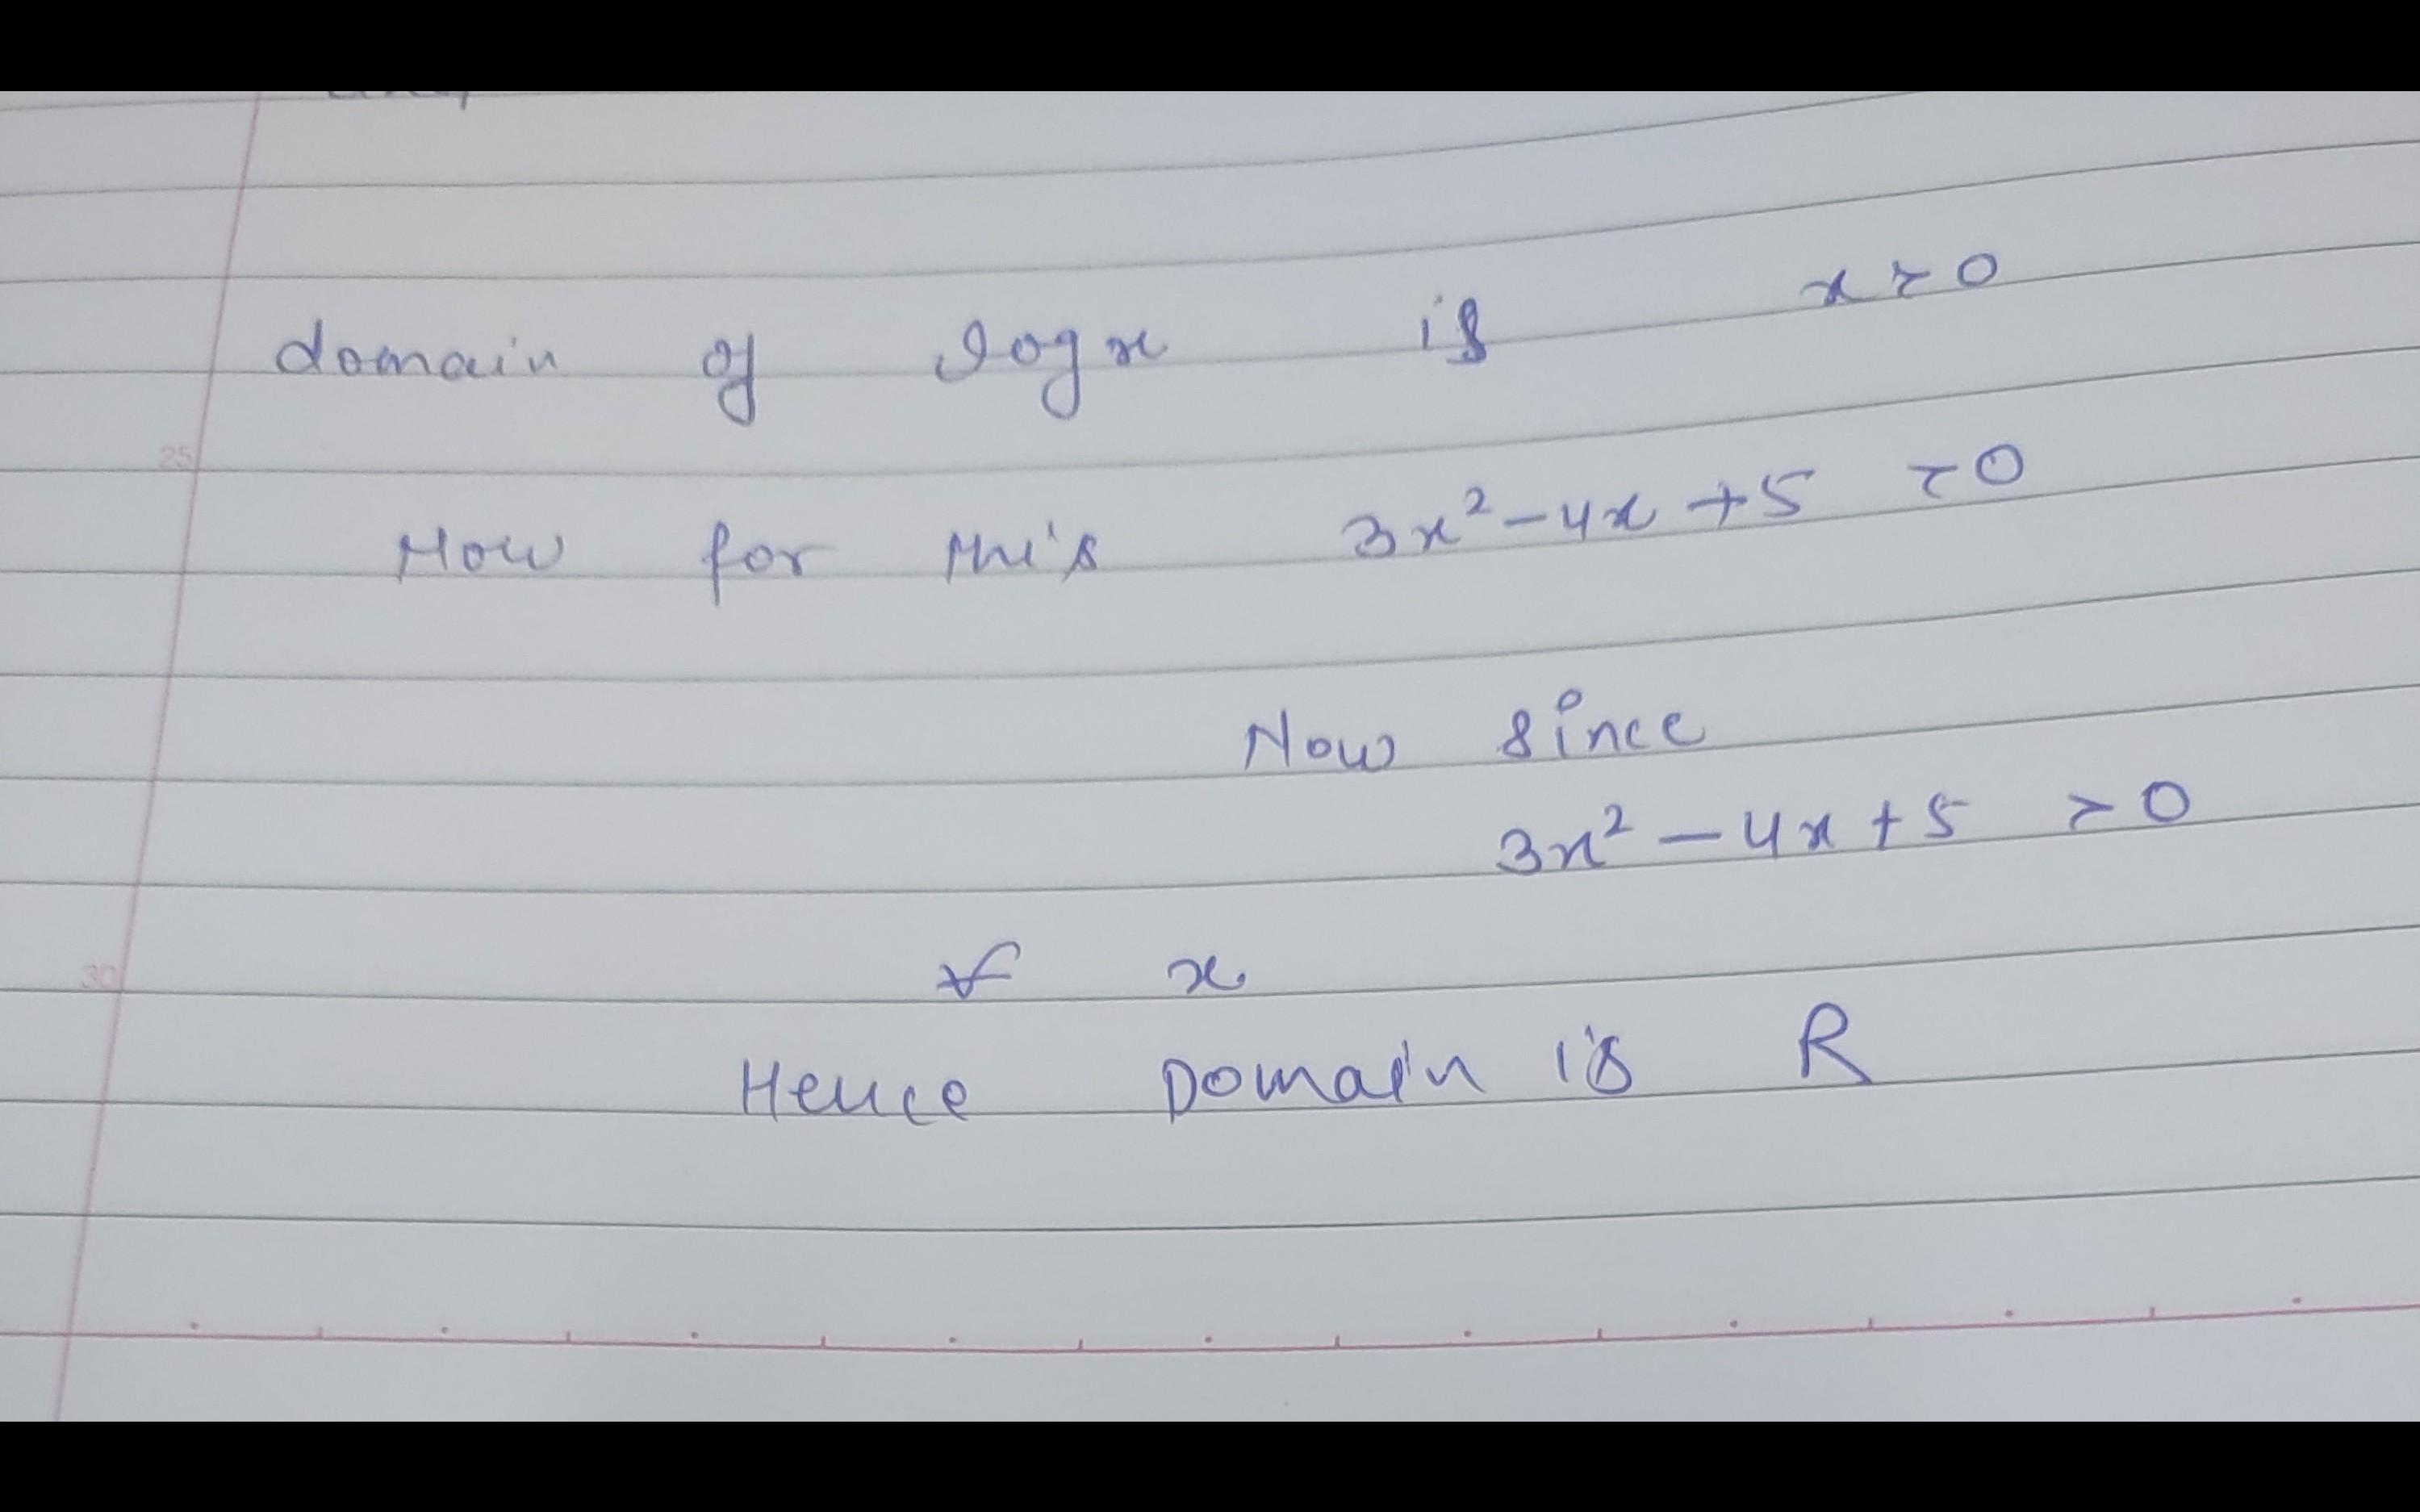 domain of log x is x > 0
25
Now for this 3x² - 4x + 5 > 0
Now since
3x² - 4x + 5 > 0
30
∀ x
Hence Domain is R